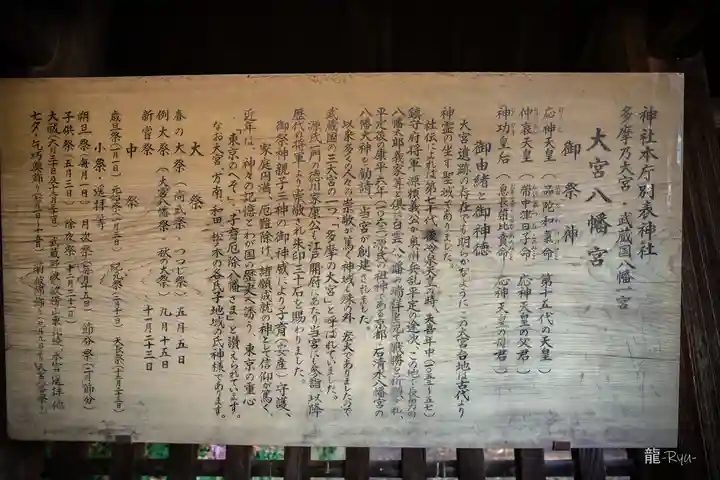 神社本庁別表神社
多摩乃大宮・武蔵国八幡一宮
大宮八幡宮
御祭神
応神天皇（品陀和気命）第十五代の天皇
仲哀天皇（帯中津日子命）応神天皇の父君
神功皇后（息長帯比賣命）応神天皇の母君
御由緒と御神徳
大宮遺跡の存在でも明らかなようにこの大宮台地は古代より
神霊の坐す聖域でありました。
社伝によれば第七十代後冷泉天皇の時、天喜年中（一〇五三～五七）
鎮守府将軍源頼義公が奥州兵乱平定の途次、この地で
八幡太郎義家等と倶に白雲八幡の瑞祥を見て戦勝を祈願され、
平定後の康平六年（一〇六三）源氏の祖神である京都・石清水八幡宮の
八幡大神を勧請し当宮が創建されました。
以来多くの人々の崇敬が篤く神域も殊の外宏大でありましたので
武蔵国の三大宮の一つ「多摩の大宮」と呼ばれていました。
源氏一門の徳川家康公も江戸開府にあたり当宮にも参詣、以降
歴代の将軍より崇敬され朱印三十石を賜わりました。
御祭神親子三神の御神威により子育（安産）守護、
家庭円満、厄難除け、諸願成就の神として信仰が篤く、
近年は、神々の記憶とわが国の歴史へ誘う、東京の重心
「東京のへそ」「子育厄除八幡さま」と讃えられています。
なお大宮・方南・和田・松ノ木の各氏子地域の氏神様であります。
大祭
春の大祭（尚武祭、つつじ祭）五月五日
例大祭（大宮八幡祭・秋の大祭）九月十五日
新嘗祭 十一月二十三日
中祭
歳旦祭（一月一日）元始祭（一月三日）紀元祭（二月十一日）天長祭
小祭・遥拝等
朔旦祭（毎月一日）月次祭（毎月十五日）節分祭（二月節分）
子供祭（五月五日）除夜祭（十二月三十一日）
大祓（六月三十日・十二月三十一日）
七夕・乞巧奠飾り（七月一日～十五日）
龍 -Ryu-